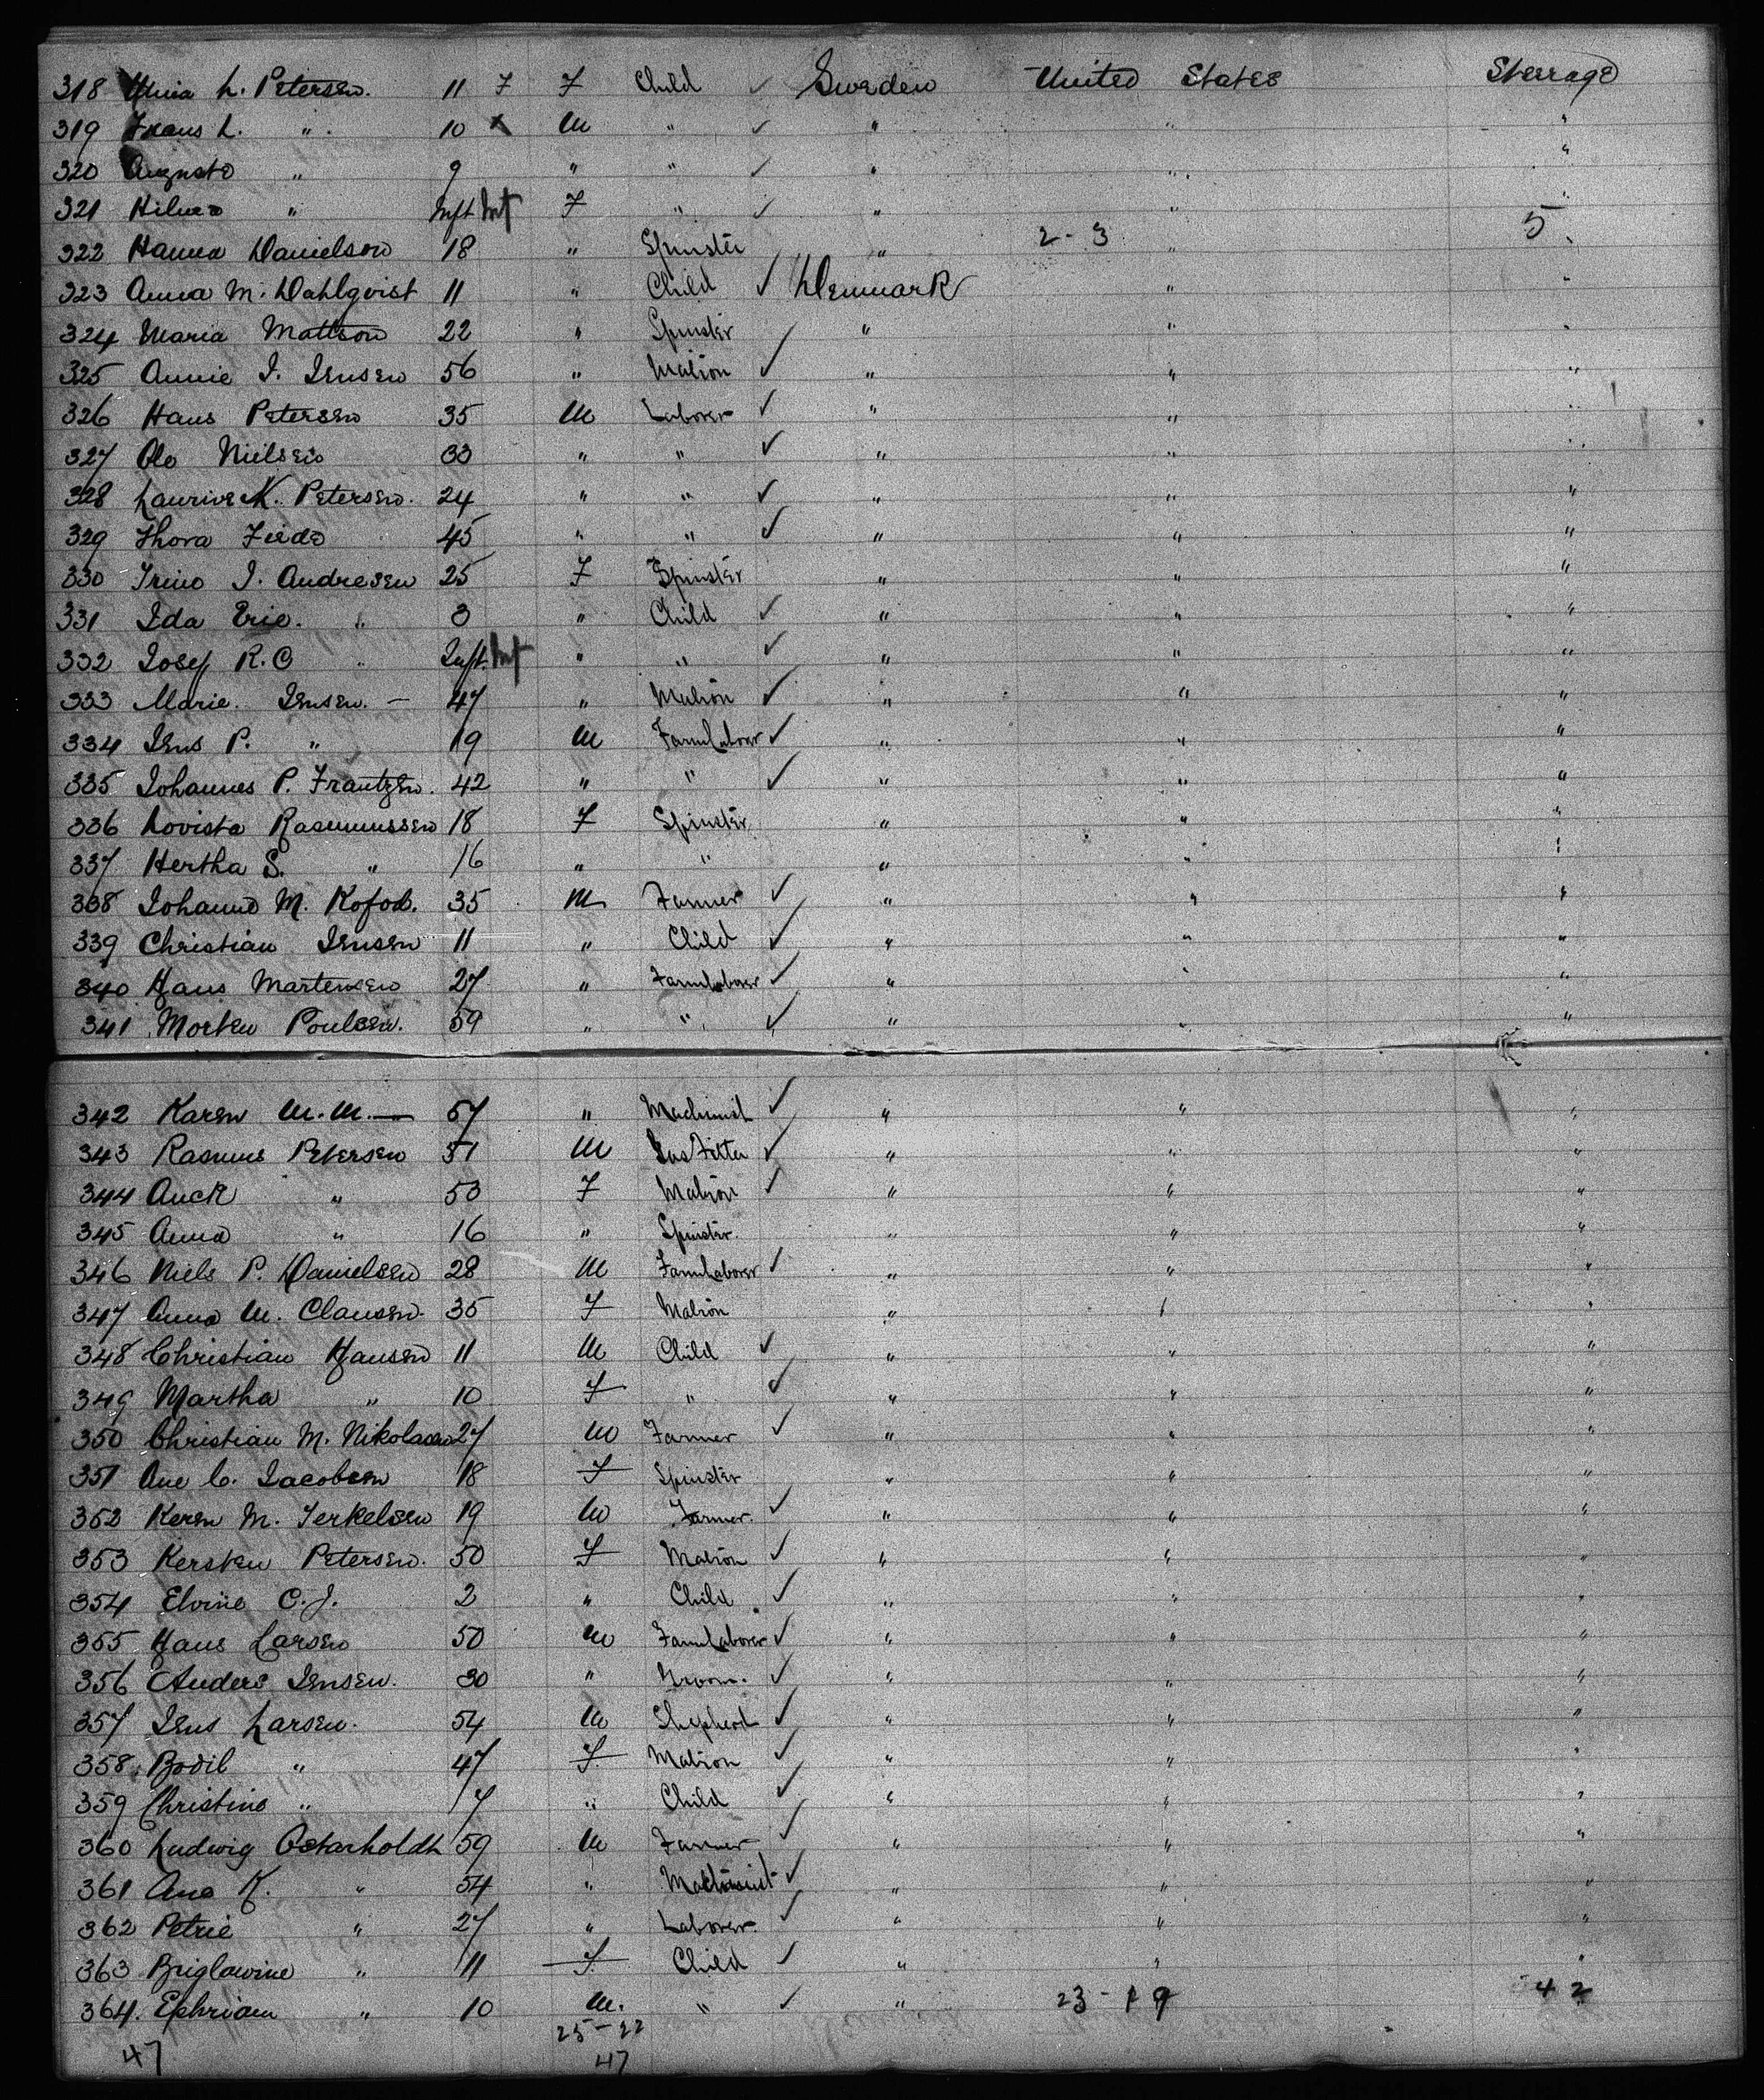 318 Alma L. Petersen. 11 F F Child ✓ Sweden United States Steerage
319 Frans L. " 10 x M " ✓ " " "
320 Auguste " 9 " " ✓ " " "
321 Hilma " Inft Inf F " ✓ " " "
322 Hanna Danielsen 18 " Spinster " 2-3 " 5 "
323 Anna M. Dahlqvist 11 " Child ✓ Denmark " "
324 Maria Mattson 22 " Spinster ✓ " " "
325 Annie I. Jensen 56 " Matron ✓ " " "
326 Hans Petersen 35 M Laborer ✓ " " "
327 Ole Nielsen 33 " " ✓ " " "
328 Laurine K. Petersen. 24 " " ✓ " " "
329 Thora Fiede 45 " " ✓ " " "
330 Trine I. Andresen 25 F Spinster " " "
331 Ida Erie. " 3 " Child ✓ " " "
332 Josef R. C " Inft. Inf " " ✓ " " "
333 Marie. Jensen. - 47 " Matron ✓ " " "
334 Jens P. " 19 M Farm Laborer ✓ " " "
335 Johannes P. Frantzen. 42 " " ✓ " " "
336 Lovista Rasmussen 18 F Spinster " " "
337 Hertha S. " 16 " " " " "
338 Johanne M. Kofod. 35 M Farmer ✓ " " "
339 Christian Jensen 11 " Child ✓ " " "
340 Hans Martensen 27 " Farmlaborer ✓ " " "
341 Morten Poulsen. 59 " " ✓ " " "
342 Karen M. M. — 57 " Machinist ✓ " " "
343 Rasmus Petersen 51 M Gas Fitter ✓ " " "
344 Anck " 53 F Matron ✓ " " "
345 Anna " 16 " Spinster. " " "
346 Niels P. Danielsen 28 M Farmlaborer ✓ " " "
347 Anna M. Clausen. 35 F Matron " " "
348 Christian Hansen 11 M Child ✓ " " "
349 Martha " 10 F " ✓ " " "
350 Christian M. Nikolasen 27 M Farmer ✓ " " "
351 Ane C. Jacobsen 18 F Spinster " " "
352 Keren M. Terkelsen 19 M Farmer. ✓ " " "
353 Kersten Petersen. 50 F Matron ✓ " " "
354 Elvine C. J. 2 " Child ✓ " " "
355 Hans Larsen 50 M Farmlaborer ✓ " " "
356 Anders Jensen. 30 " Groom. ✓ " " "
357 Jens Larsen. 54 M Shepherd ✓ " " "
358 Bodil " 47 F Matron ✓ " " "
359 Christine " 7 " Child ✓ " " "
360 Ludwig Osterholdt 59 M Farmer ✓ " " "
361 Ane K. " 54 " Machinist ✓ " " "
362 Petrie " 27 " Laborer ✓ " " "
363 Briglowine " 11 F Child ✓ " " "
364. Ephriam " 10 M. " ✓ " 23-19 42
25-22
47 47